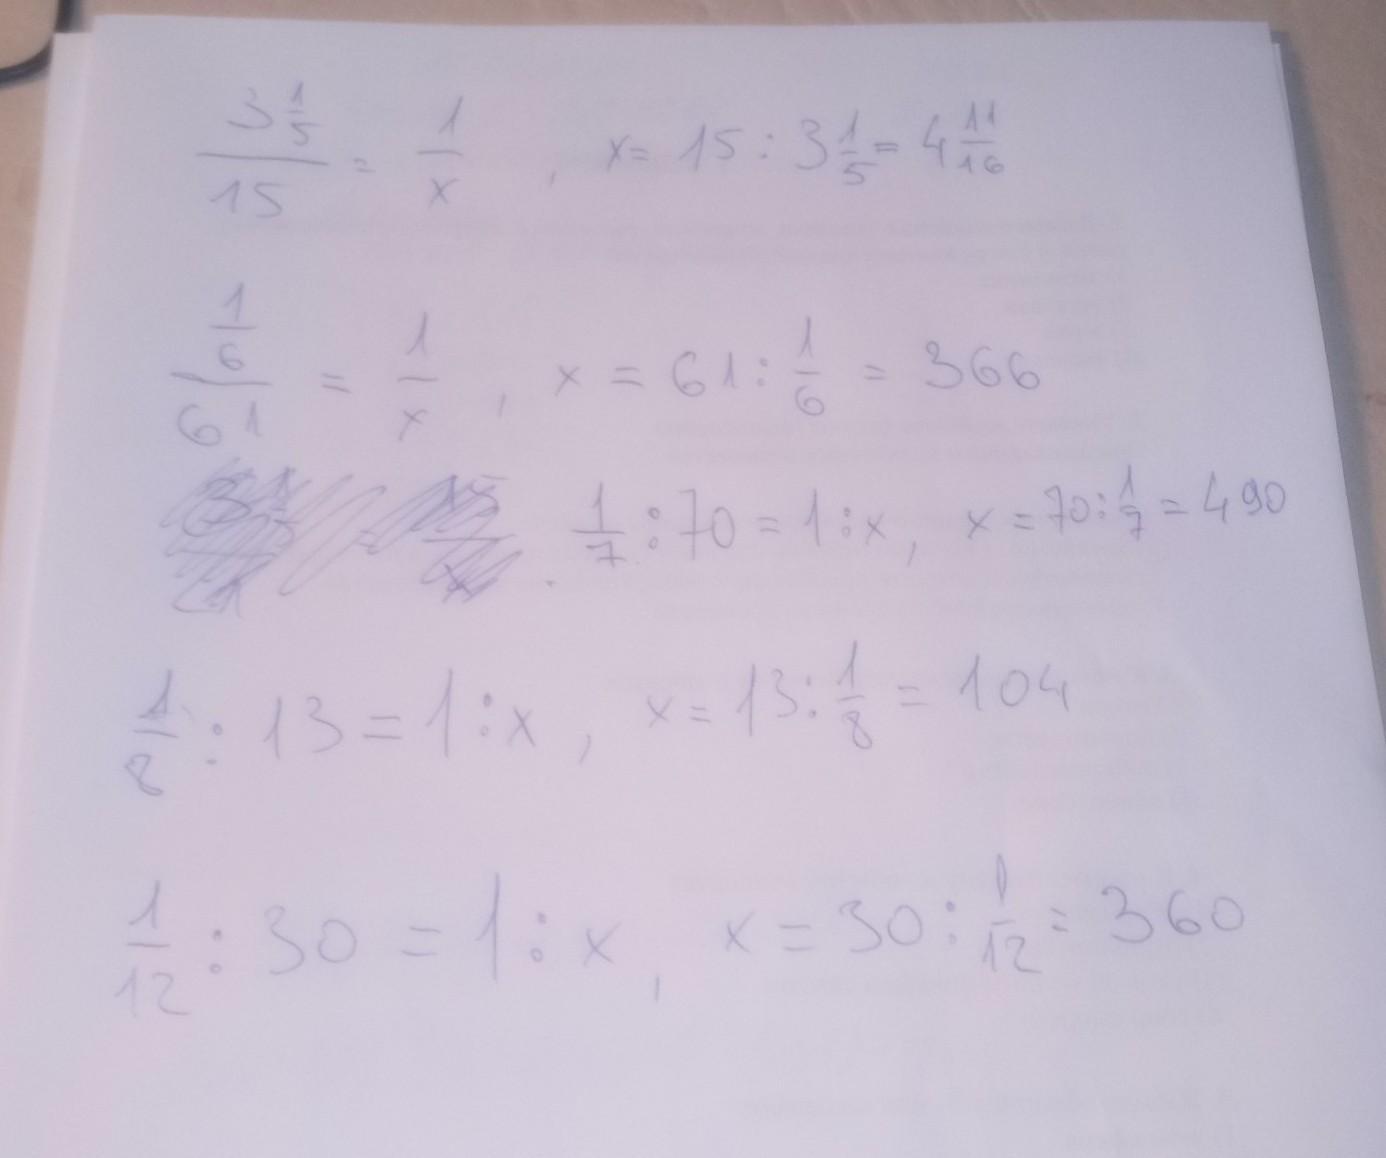 3 1/5 / 15 = 1/x , x = 15 : 3 1/5 = 4 11/16
1/6 / 61 = 1/x , x = 61 : 1/6 = 366
1/7 : 70 = 1 : x , x = 70 : 1/7 = 490
1/8 : 13 = 1 : x , x = 13 : 1/8 = 104
1/12 : 30 = 1 : x , x = 30 : 1/12 = 360